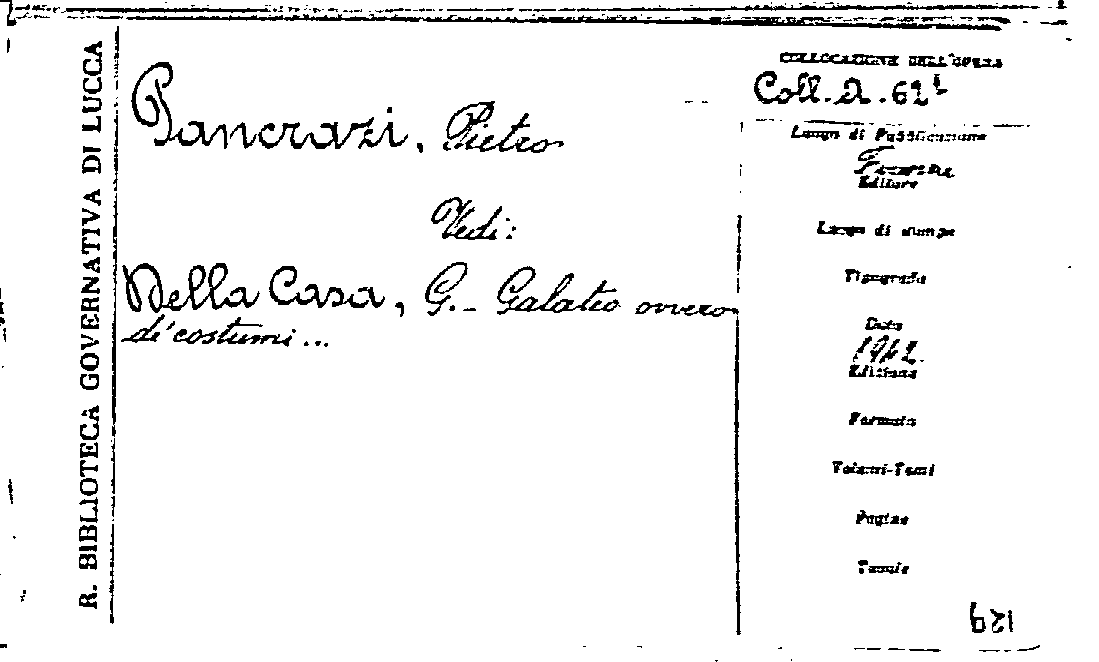 R. BIBLIOTECA GOVERNATIVA DI LUCCA
Pancrazi, Pietro
Vedi:
Della Casa, G. - Galateo ovvero
de' costumi ...
COLLOCAZIONE DELL'OPERA
Coll. A. 62¹
Luogo di Pubblicazione
Firenze
Editore
Luogo di stampa
Tipografia
Data
1942.
Edizione
Formato
Volumi-Tomi
Pagine
Tavole
129